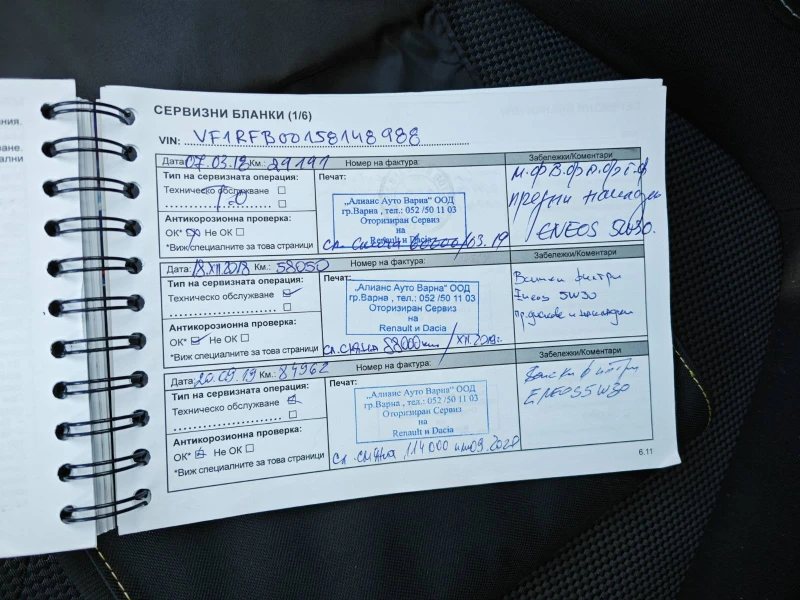 СЕРВИЗНИ БЛАНКИ (1/6)
VIN: VF1RFB00158148988
Дата: 07.03.18 Км.: 29191 Номер на фактура: Забележки/Коментари
Тип на сервизната операция: Печат:
Техническо обслужване
Антикорозионна проверка:
ОК* Не ОК
*Виж/специалните за това страници
„Алианс Ауто Варна" ООД
гр.Варна , тел.: 052 /50 11 03
Оторизиран Сервиз
на
Renault и Dacia
сл. смяна /03.19
предни накладки
ENEOS 5W30.
Дата: 18.XII.2018 Км.: 58050 Номер на фактура: Забележки/Коментари
Тип на сервизната операция: Печат:
Техническо обслужване
Антикорозионна проверка:
ОК* Не ОК
*Виж специалните за това страници
„Алианс Ауто Варна" ООД
гр.Варна , тел.: 052 /50 11 03
Оторизиран Сервиз
на
Renault и Dacia
сл. смяна 88000 км / XII.2019г.
Всички филтри
Eneos 5W30
Пр. дискове и накладки
Дата: 20.09.19 Км.: 84962 Номер на фактура: Забележки/Коментари
Тип на сервизната операция: Печат:
Техническо обслужване
Антикорозионна проверка:
ОК* Не ОК
*Виж специалните за това страници
„Алианс Ауто Варна" ООД
гр.Варна , тел.: 052 /50 11 03
Оторизиран Сервиз
на
Renault и Dacia
сл. смяна 114000 или 09.2020
ENEOS 5W30
6.11